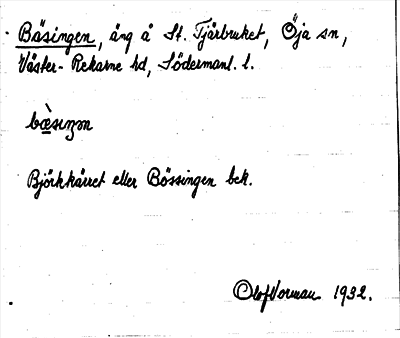 Bäsingen, äng å St. Tjärbruket, Öja sn,
Väster-Rekarne hd, Södermanl. l.
Björkkärret eller Bössingen bek.
Olof Vorman 1932.